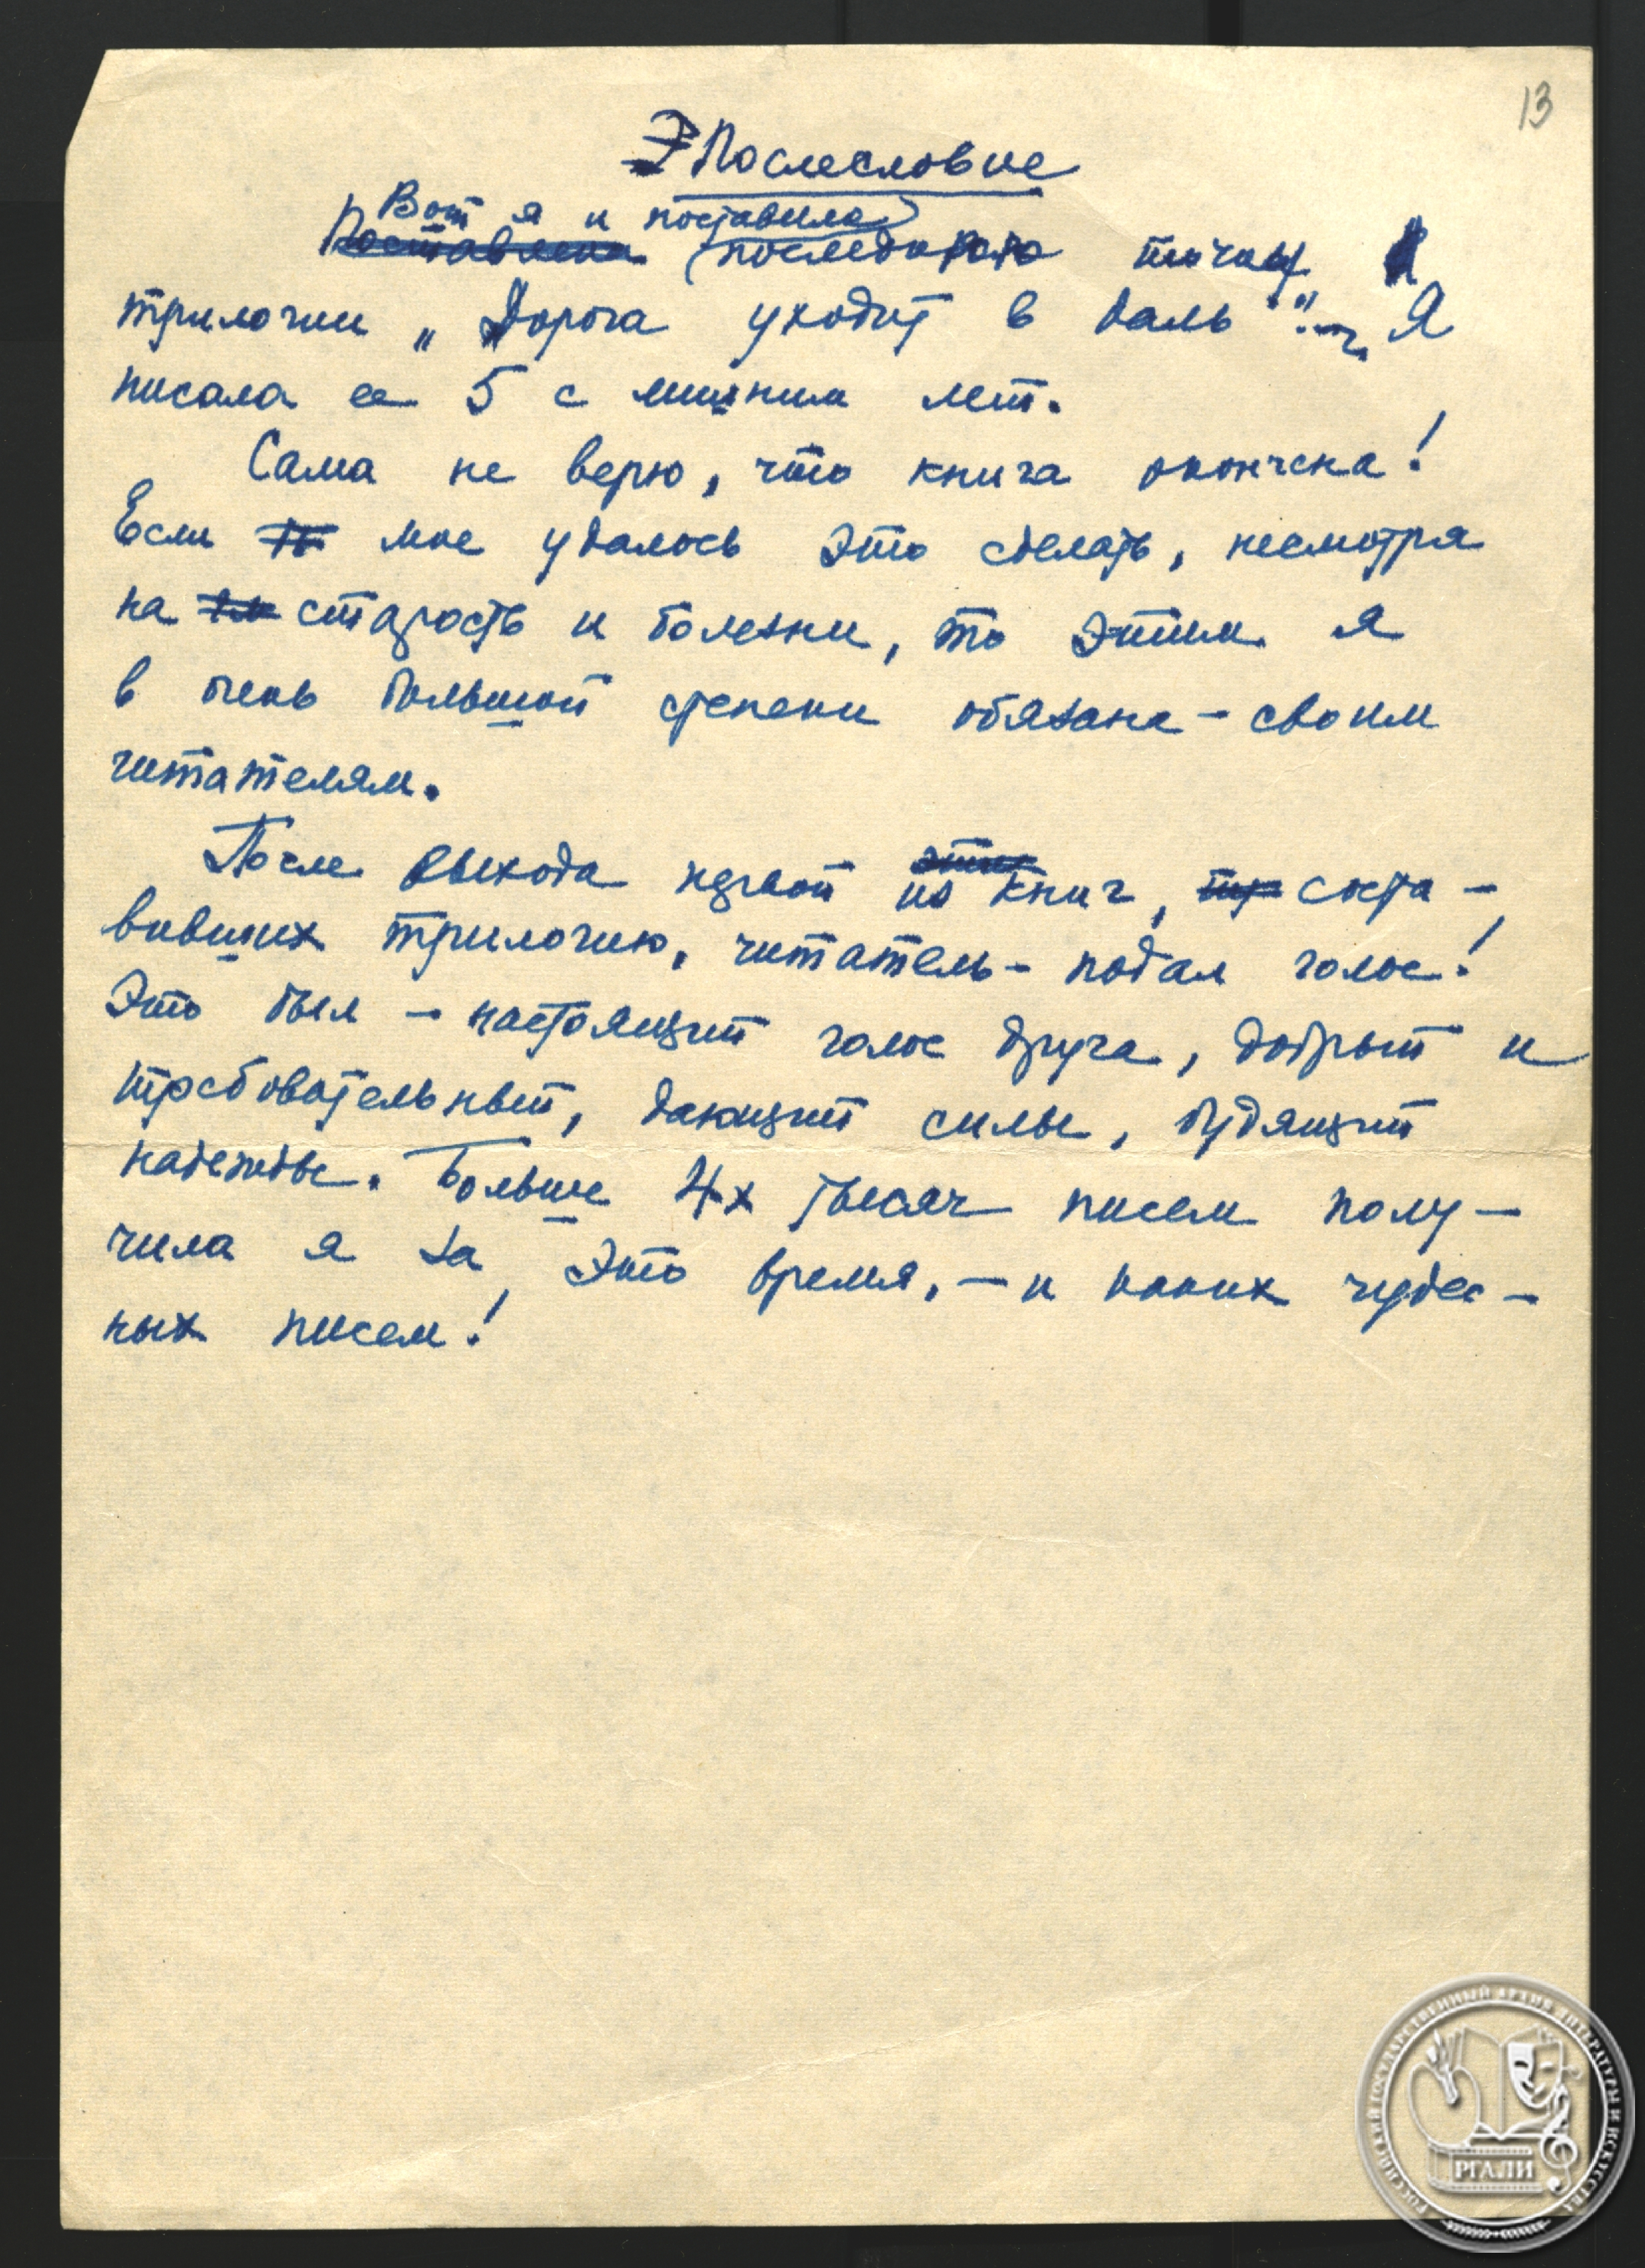 13
Послесловие
Вот я и поставила
Поставлена последнюю точку
трилогии „Дорога уходит в даль". Я
писала ее 5 с лишним лет.
Сама не верю, что книга окончена!
Если мне удалось это сделать, несмотря
на старость и болезни, то этим я
в очень большой степени обязана – своим
читателям.
После выхода первой из этих книг, соста–
вивших трилогию, читатель – подал голос!
Это был – настоящий голос друга, добрый и
требовательный, дающий силы, будящий
надежды. Больше 4х тысяч писем полу–
чила я за это время, – и каких чудес–
ных писем!
РОССИЙСКИЙ ГОСУДАРСТВЕННЫЙ АРХИВ ЛИТЕРАТУРЫ И ИСКУССТВА
РГАЛИ